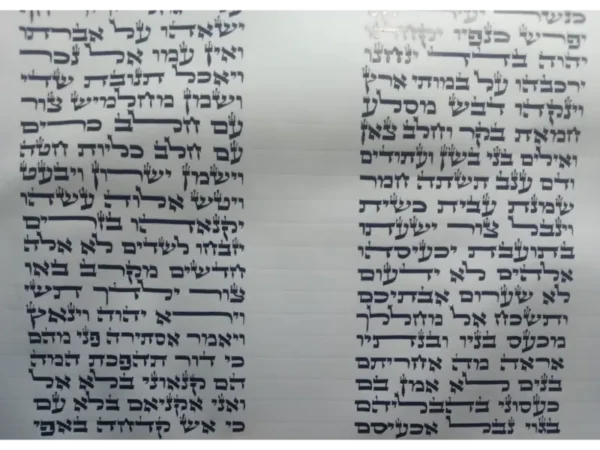 כנשר יעיר
יפרש כנפיו יקחהו ישאהו על אברתו
יהוה בדד ינחנו ואין עמו אל נכר
ירכבהו על במותי ארץ ויאכל תנובת שדי
וינקהו דבש מסלע ושמן מחלמיש צור
חמאת בקר וחלב צאן עם חלב כרים
ואילים בני בשן ועתודים עם חלב כליות חטה
ודם ענב תשתה חמר וישמן ישרון ויבעט
שמנת עבית כשית ויטש אלוה עשהו
וינבל צור ישעתו יקנאהו בזרים
בתועבת יכעיסהו יזבחו לשדים לא אלה
אלהים לא ידעום חדשים מקרב באו
לא שערום אבתיכם צור ילדך תשי
ותשכח אל מחללך וירא יהוה וינאץ
מכעס בניו ובנתיו ויאמר אסתירה פני מהם
אראה מה אחריתם כי דור תהפכת המה
בנים לא אמן בם הם קנאוני בלא אל
כעסוני בהבליהם ואני אקניאם בלא עם
בגוי נבל אכעיסם כי אש קדחה באפי